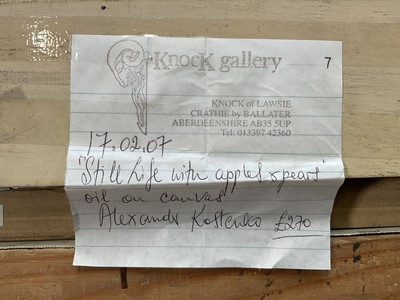 Knock gallery
7
KNOCK of LAWSIE
CRATHIE by BALLATER
ABERDEENSHIRE AB35 5UP
Tel: 013397 42360
17.02.07
"Still Life with apples & pears"
oil on canvas
Alexandr Kostenko £270